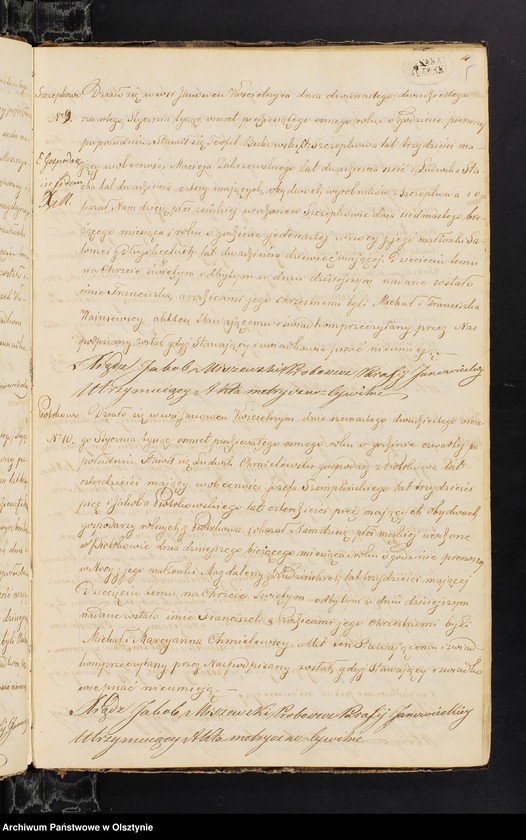 Szczepkowo
N° 9.
Działo się w wsi Janowcu Kościelnym dnia dwunastego dwudziestego
czwartego Stycznia tysiąc ośmset pięćdziesiątego osmego roku o godzinie pierwszy
popołudniu Stawił się Teofil lat trzydzieści ma
jący w obecności Macieja Zakrzewskiego lat dwadzieścia sześć i Ludwika Sta
cha lat dwadzieścia cztery mających, obydwóch wyrobników z Szczepkowa i o
kazał Nam dziecię płci żeńskiej urodzone w Szczepkowie dnia siedmnastego bie
żącego miesiąca i roku o godzinie jedenastej w nocy z jego małżonki
lat dwadzieścia dziewięć mającej. Dziecięciu temu
na Chrzcie świętym odbytym w dniu dzisiejszym nadane zostało
imie Franciszka, a rodzicami jego chrzestnemi byli Michał i Franciszka
Waśniewscy akt ten Stawającemu i świadkom przeczytany przez Nas
podpisany został gdyż Stawający i świadkowie pisać nieumieją. —
Xiądz Jakob Miszewski Proboszcz Parafij Janowieckiej
Utrzymujący Akta metryczno-Cywilne
Piotrkowo
N° 10.
Działo się w wsi Janowcu Kościelnym, dnia
go Stycznia tysiąc ośmset pięćdziesiątego osmego roku o godzinie czwartej po
południu. Stawił się Ludwik Chmielewski gospodarz z Piotrkowa lat
czterdzieści mający w obecności Józefa lat trzydzieści
pięć i Jakoba Piotrkowskiego lat czterdzieści pięć mających obydwóch
gospodarzy rolnych z Piotrkowa i okazał Nam dziecię płci męskiej urodzone
w Piotrkowie dnia dzisiejszego bieżącego miesiąca i roku o godzinie pierwszy
w Nocy z jego małżonki Magdaleny z lat trzydzieści mającej
Dziecięciu temu na Chrzcie Świętym odbytym w dniu dzisiejszym
nadane zostało imie Franciszek a rodzicami jego chrzestnemi byli
Michał i Marcyanna Chmielewscy. Akt ten Stawającemu i świad
kom przeczytany przez Nas podpisany został, gdyż Stawający i świadko
wie pisać nieumieją. —
Xiądz Jakob Miszewski Proboszcz Parafij Janowieckiej
Utrzymujący Akta metryczno-Cywilne
Archiwum Państwowe w Olsztynie